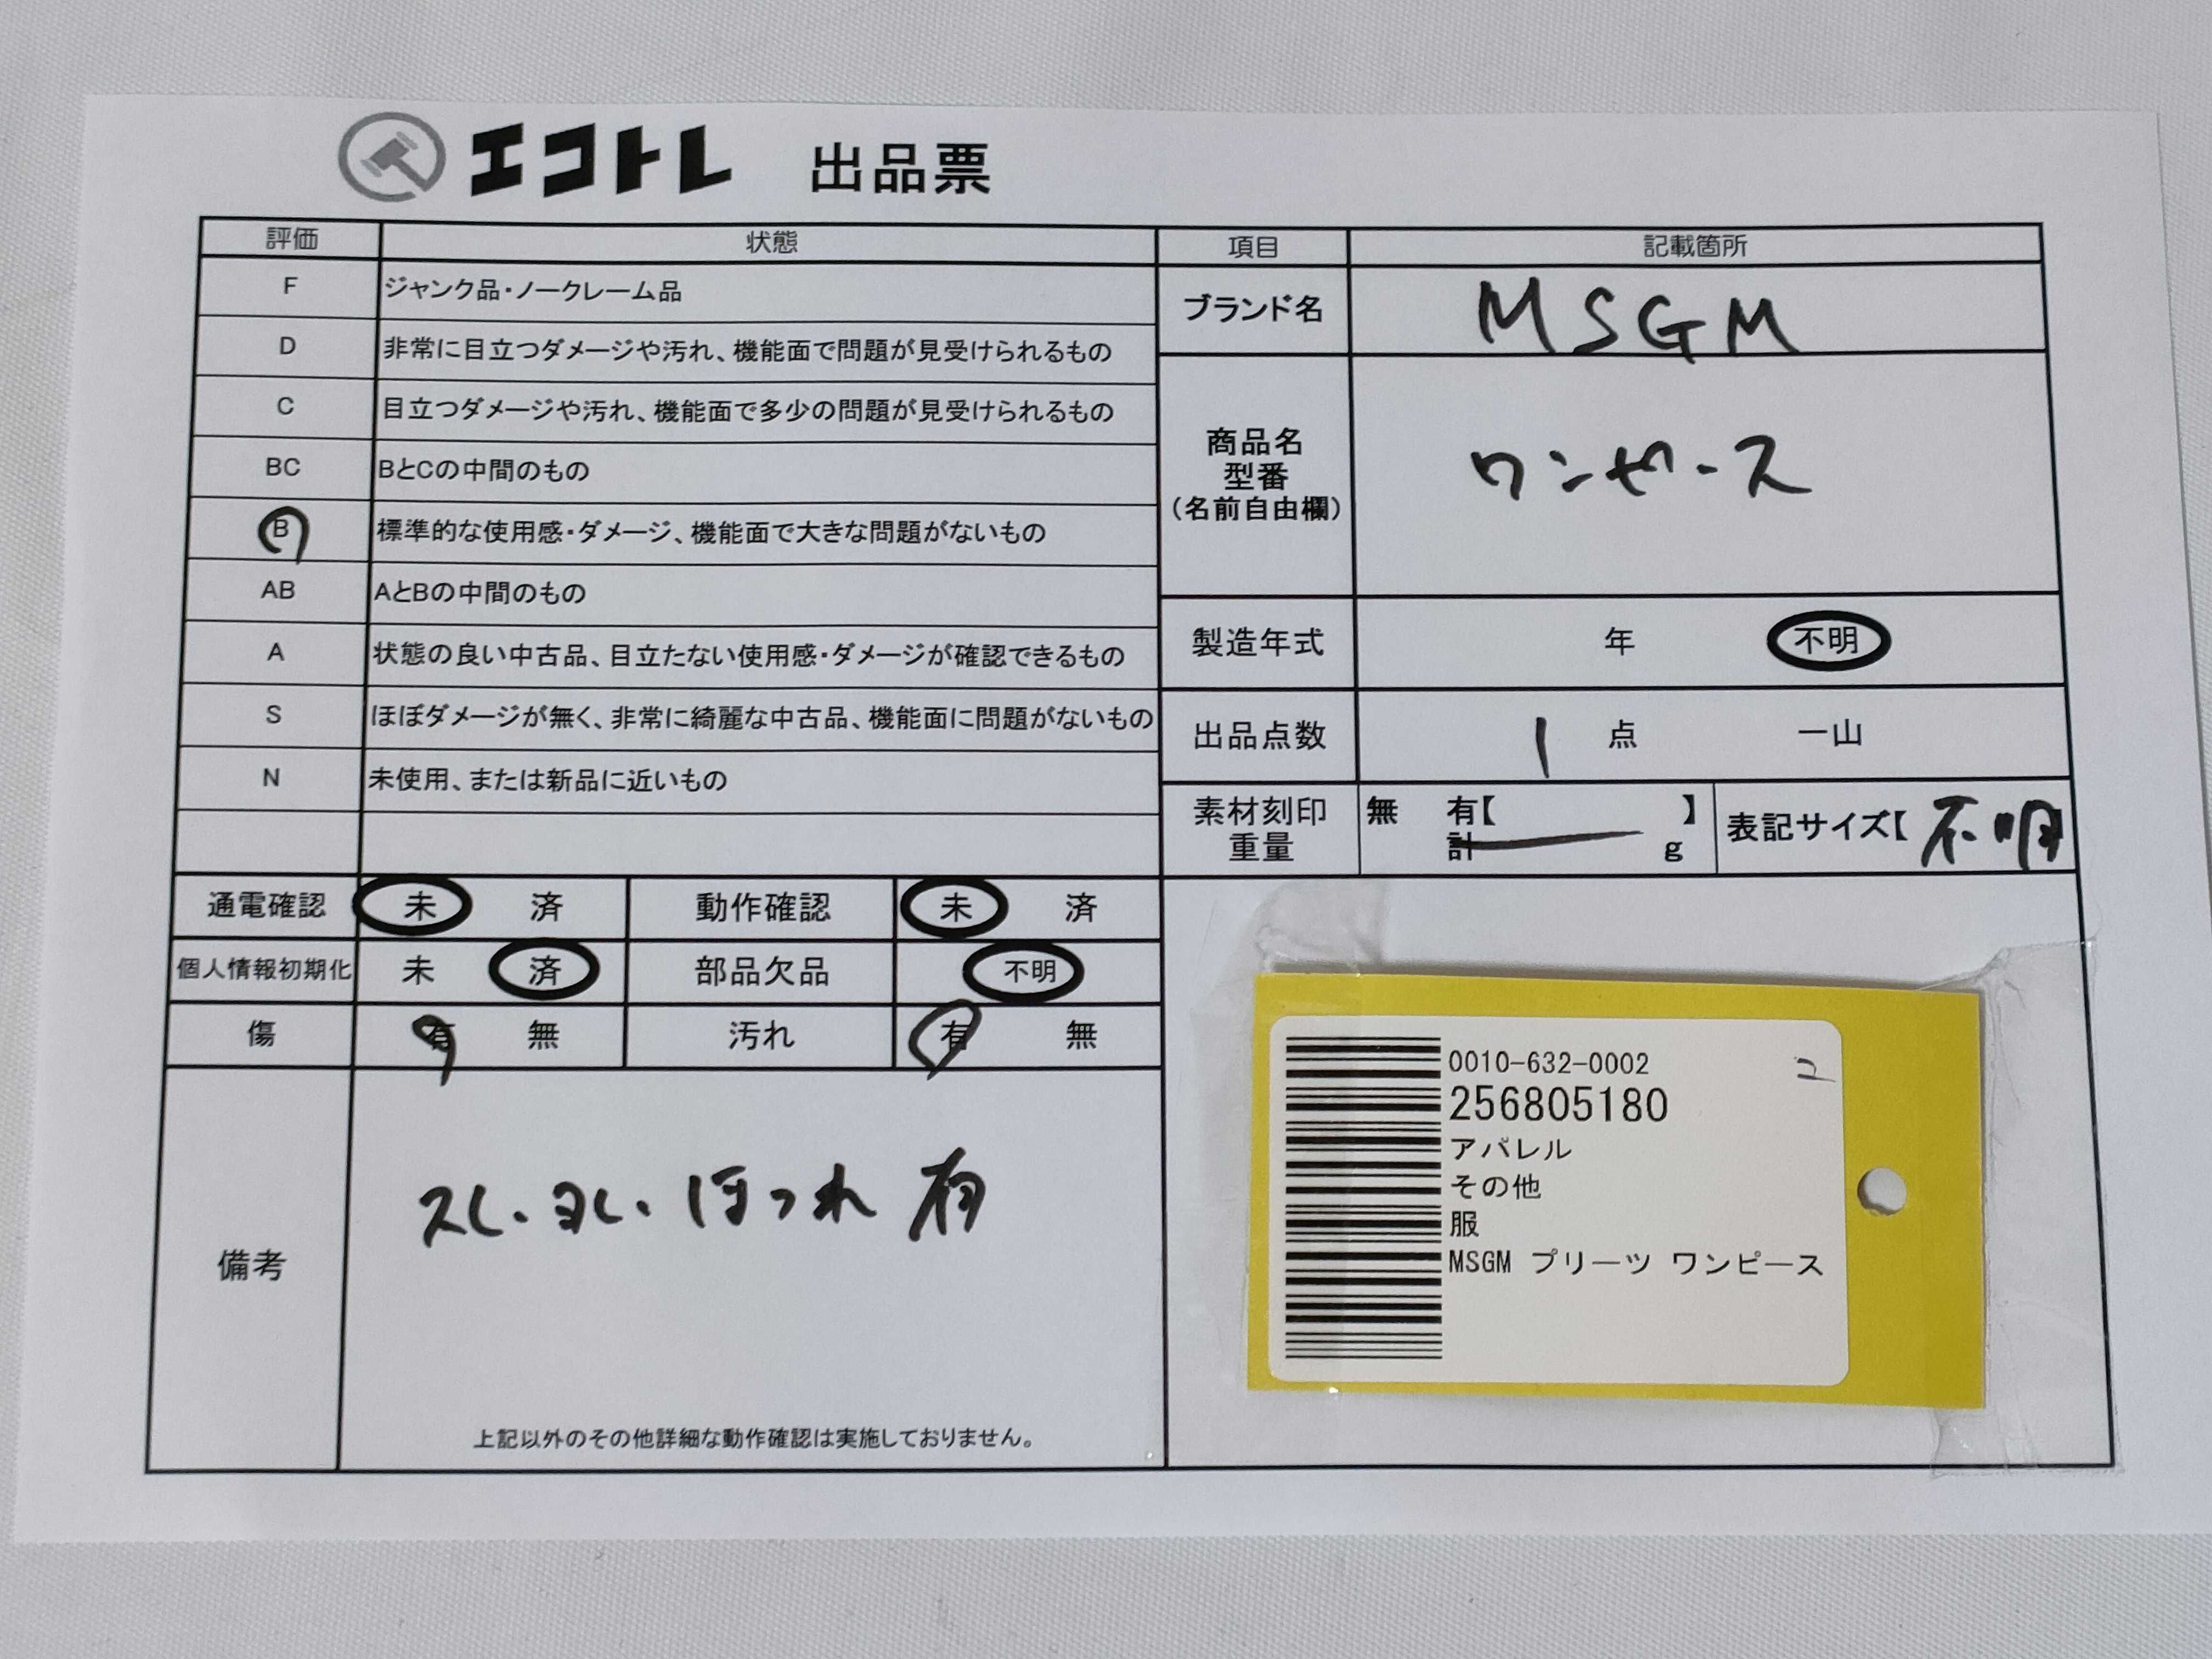 エコトレ 出品票
評価 状態 項目 記載箇所
F ジャンク品・ノークレーム品
D 非常に目立つダメージや汚れ、機能面で問題が見受けられるもの
C 目立つダメージや汚れ、機能面で多少の問題が見受けられるもの
BC BとCの中間のもの
B 標準的な使用感・ダメージ、機能面で大きな問題がないもの
AB AとBの中間のもの
A 状態の良い中古品、目立たない使用感・ダメージが確認できるもの
S ほぼダメージが無く、非常に綺麗な中古品、機能面に問題がないもの
N 未使用、または新品に近いもの
ブランド名 MSGM
商品名
型番
(名前自由欄)
ワンピース
製造年式 年 不明
出品点数 1 点 一山
素材刻印 無 有【 】
重量 計 g
表記サイズ【不明
通電確認 未 済 動作確認 未 済
個人情報初期化 未 済 部品欠品 不明
傷 有 無 汚れ 有 無
備考
スレ・ヨレ・ほつれ 有
上記以外のその他詳細な動作確認は実施しておりません。
0010-632-0002
256805180
アパレル
その他
服
MSGM プリーツ ワンピース